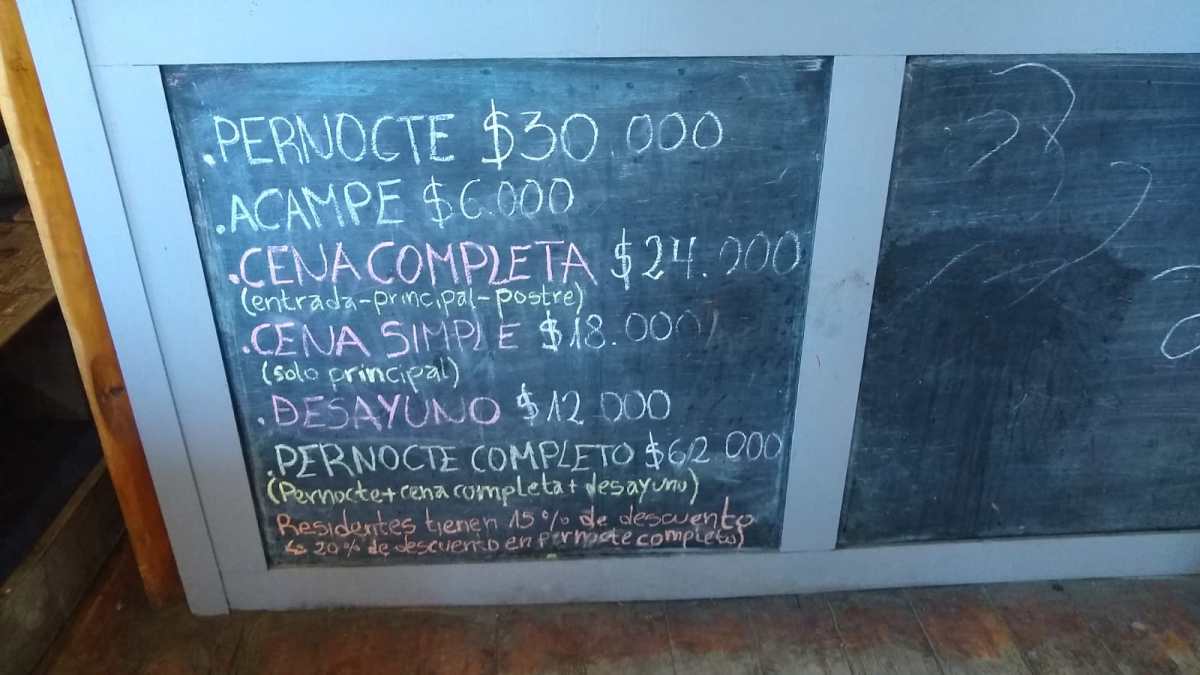 .PERNOCTE $30.000
.ACAMPE $6.000
.CENA COMPLETA $24.000
(entrada-principal-postre)
.CENA SIMPLE $18.000
(solo principal)
.DESAYUNO $12.000
.PERNOCTE COMPLETO $62.000
(Pernocte+cena completa+desayuno)
Residentes tienen 15% de descuento
↳ 20% de descuento en pernocte completo)